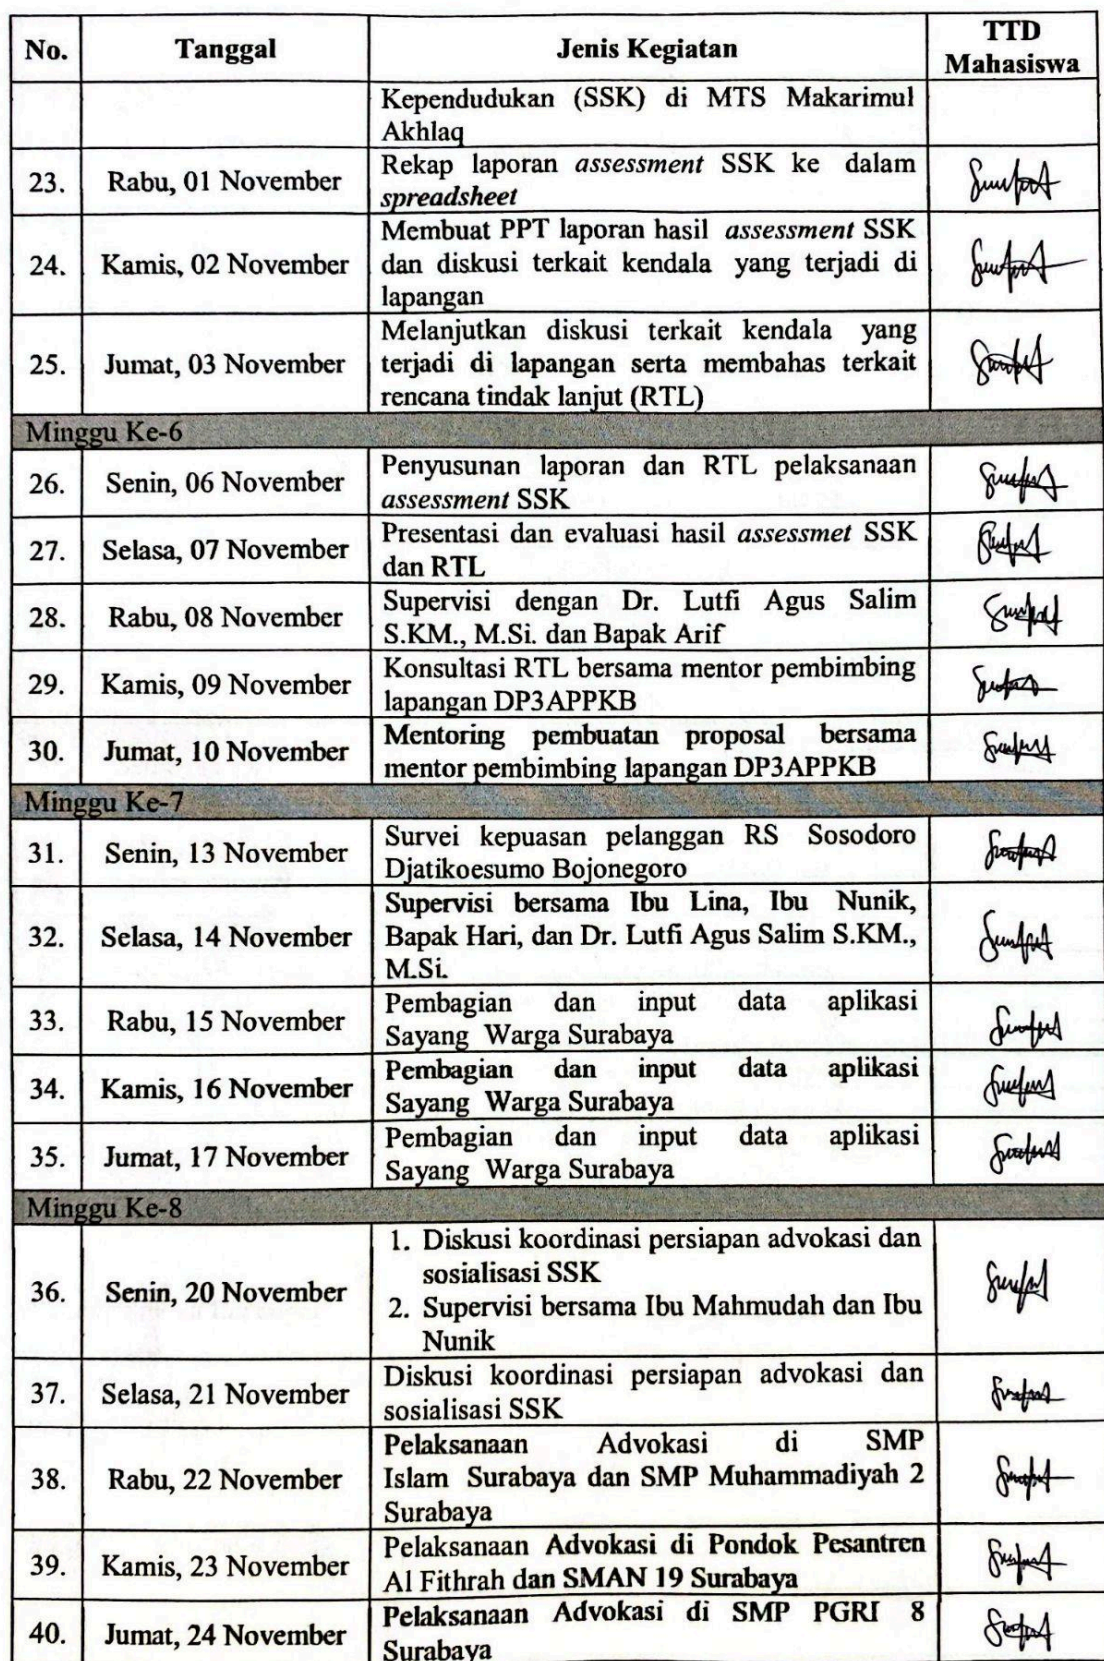 No. Tanggal Jenis Kegiatan TTD
Mahasiswa
Kependudukan (SSK) di MTS Makarimul
Akhlaq
23. Rabu, 01 November Rekap laporan assessment SSK ke dalam
spreadsheet
24. Kamis, 02 November Membuat PPT laporan hasil assessment SSK
dan diskusi terkait kendala yang terjadi di
lapangan
25. Jumat, 03 November Melanjutkan diskusi terkait kendala yang
terjadi di lapangan serta membahas terkait
rencana tindak lanjut (RTL)
Minggu Ke-6
26. Senin, 06 November Penyusunan laporan dan RTL pelaksanaan
assessment SSK
27. Selasa, 07 November Presentasi dan evaluasi hasil assessmet SSK
dan RTL
28. Rabu, 08 November Supervisi dengan Dr. Lutfi Agus Salim
S.KM., M.Si. dan Bapak Arif
29. Kamis, 09 November Konsultasi RTL bersama mentor pembimbing
lapangan DP3APPKB
30. Jumat, 10 November Mentoring pembuatan proposal bersama
mentor pembimbing lapangan DP3APPKB
Minggu Ke-7
31. Senin, 13 November Survei kepuasan pelanggan RS Sosodoro
Djatikoesumo Bojonegoro
32. Selasa, 14 November Supervisi bersama Ibu Lina, Ibu Nunik,
Bapak Hari, dan Dr. Lutfi Agus Salim S.KM.,
M.Si.
33. Rabu, 15 November Pembagian dan input data aplikasi
Sayang Warga Surabaya
34. Kamis, 16 November Pembagian dan input data aplikasi
Sayang Warga Surabaya
35. Jumat, 17 November Pembagian dan input data aplikasi
Sayang Warga Surabaya
Minggu Ke-8
36. Senin, 20 November 1. Diskusi koordinasi persiapan advokasi dan
sosialisasi SSK
2. Supervisi bersama Ibu Mahmudah dan Ibu
Nunik
37. Selasa, 21 November Diskusi koordinasi persiapan advokasi dan
sosialisasi SSK
38. Rabu, 22 November Pelaksanaan Advokasi di SMP
Islam Surabaya dan SMP Muhammadiyah 2
Surabaya
39. Kamis, 23 November Pelaksanaan Advokasi di Pondok Pesantren
Al Fithrah dan SMAN 19 Surabaya
40. Jumat, 24 November Pelaksanaan Advokasi di SMP PGRI 8
Surabaya